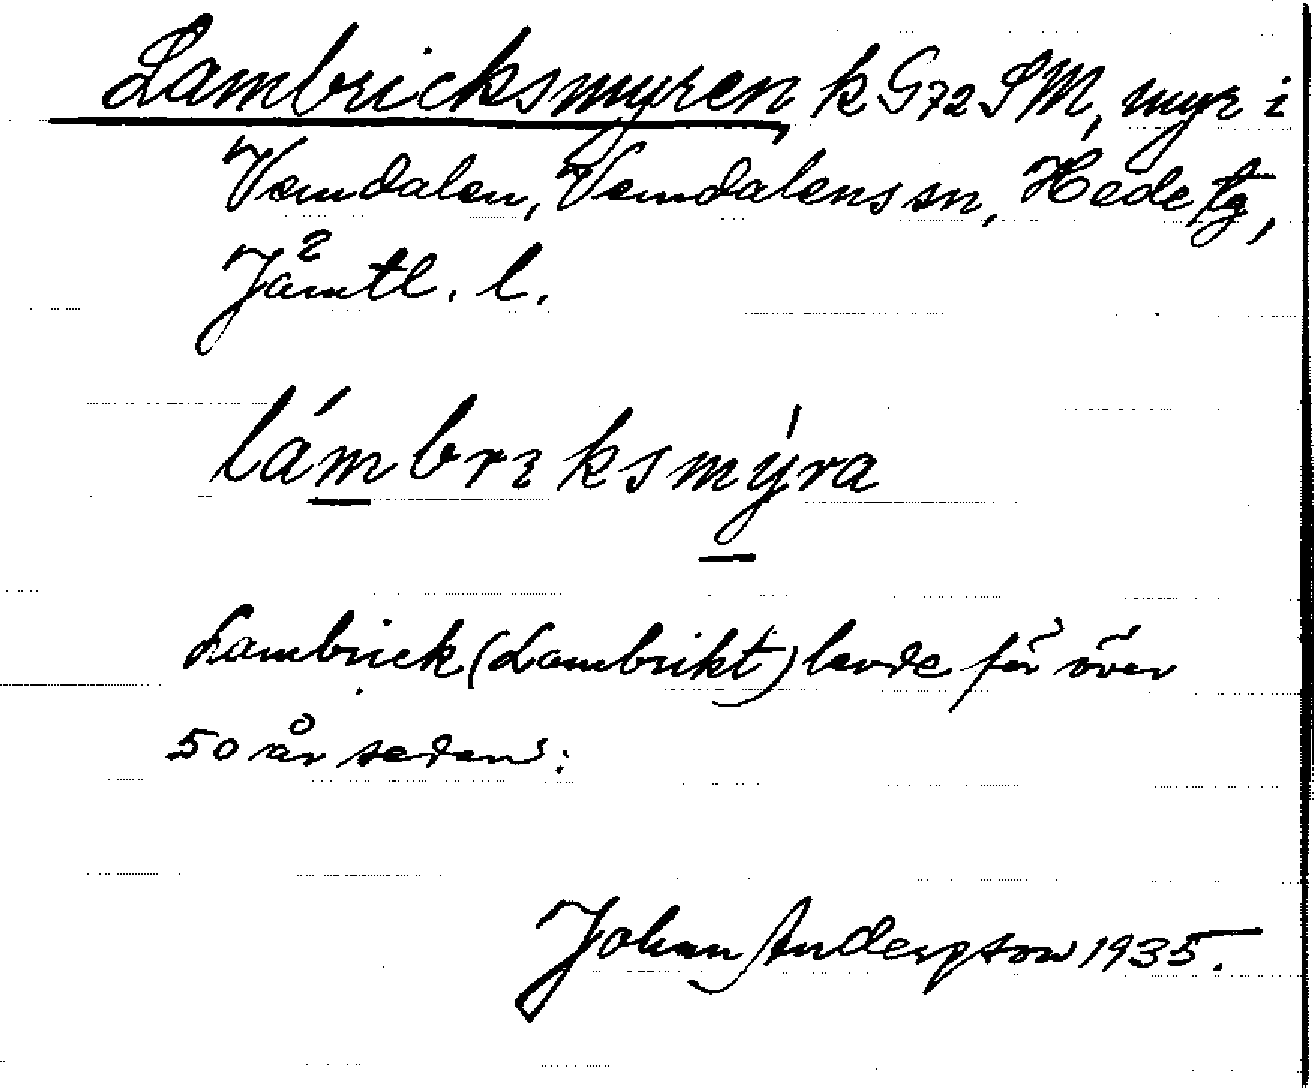 Lambricksmyren k G72 SM, myr i
Vemdalen, Vemdalens sn, Hede tg,
Jämtl. l.
lámbrıksmýra
Lambrick (Lambrikt) levde för över
50 år sedan.
Johan Andersson 1935.